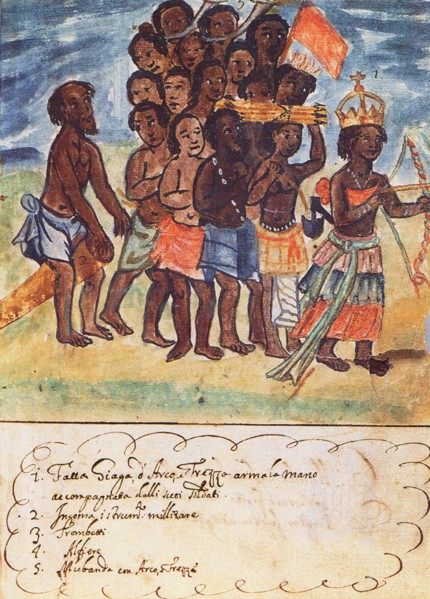 3
1
1. Fatta Giaga d'Arco, e Frezze arma la mano
accompagnata dalli suoi soldati.
2. Ingoma istrum. millitare
3. Trombetti
4. Alfiere
5. Mubanda con Arco, e Frezze